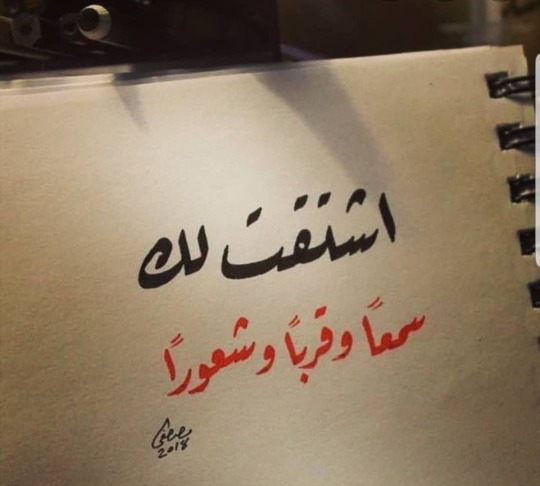 اشتقت لك
سمعاً وقرباً وشعوراً
مصطفى
2018